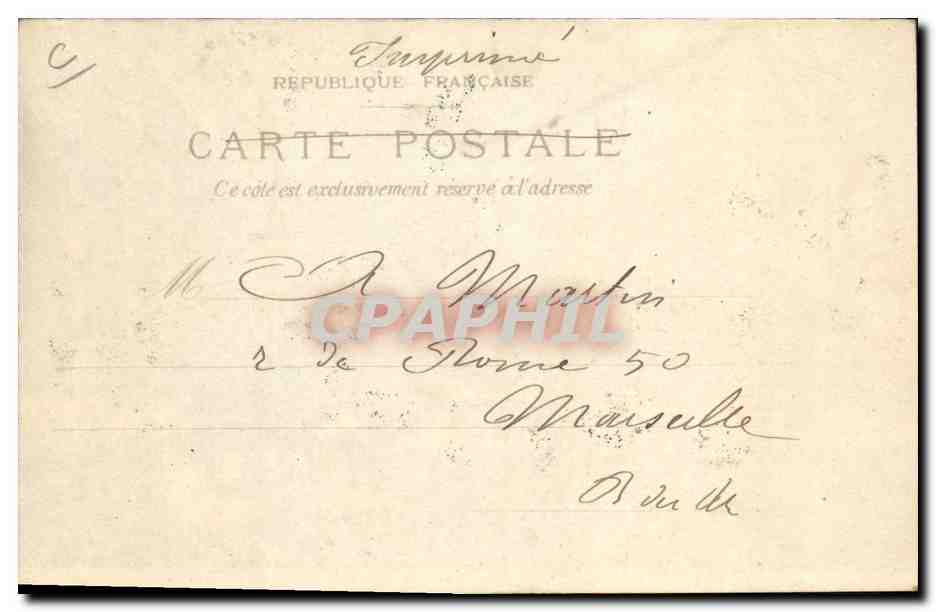 C
Imprimé
REPUBLIQUE FRANÇAISE
CARTE POSTALE
Ce côté est exclusivement réservé à l'adresse
M A Martin
CPAPHIL
r de Rome 50
Marseille
B du Rh